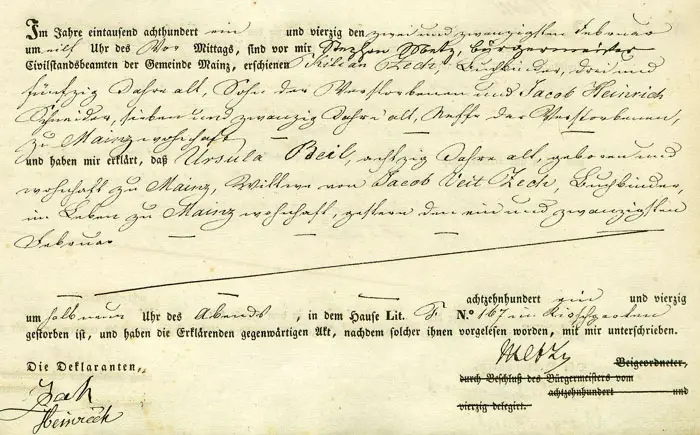 Im Jahre eintausend achthundert ein und vierzig den zwei und zwanzigsten Februar
um eilf Uhr des Vor Mittags, sind vor mir Stephan Metz, Bürgermeister
Civilstandsbeamten der Gemeinde Mainz, erschienen Kilian Zech, Buchbinder, drei und
fünfzig Jahre alt, Sohn der Verstorbenen und Jacob Heinrich
Schneider, sieben und zwanzig Jahre alt, Neffe der Verstorbenen,
zu Mainz wohnhaft
und haben mir erklärt, daß Ursula Beil, achtzig Jahre alt, geboren und
wohnhaft zu Mainz, Wittwe von Jacob Veit Zech, Buchbinder,
im Leben zu Mainz wohnhaft, gestern den ein und zwanzigsten
Februar
achtzehnhundert ein und vierzig
um halb neun Uhr des Abends, in dem Hause Lit. F N.º 167 in Kirschgarten
gestorben ist, und haben die Erklärenden gegenwärtigen Akt, nachdem solcher ihnen vorgelesen worden, mit mir unterschrieben.
Metz
Beigeordneter,
Die Deklaranten,
durch Beschluß des Bürgermeisters vom
achtzehnhundert und
vierzig delegirt.
Heinrich